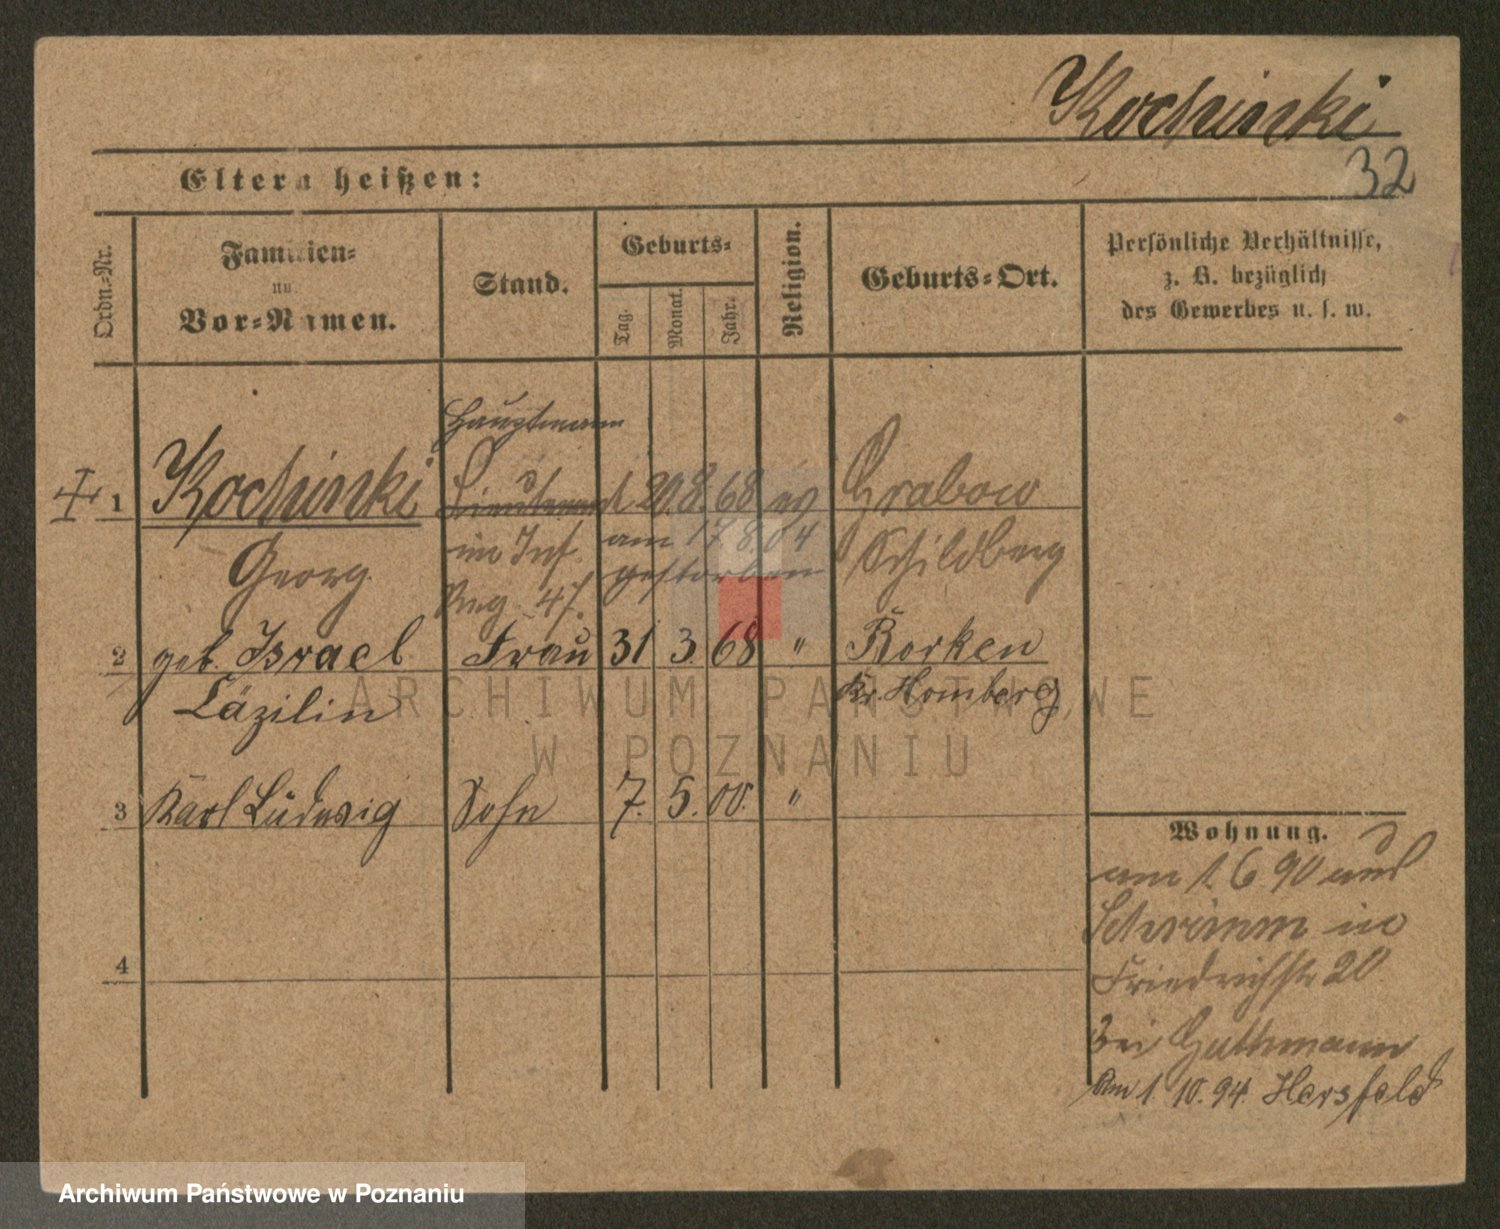 Kochinki
32
Eltern heißen:
Ordn.-Nr.
Familien-
un
Vor-Namen.
Stand.
Geburts-
Tag.
Monat.
Jahr.
Religion.
Geburts-Ort.
Persönliche Verhältnisse,
z. B. bezüglich
des Gewerbes u. s. w.
Hauptmann
1 Kochinki Lieutenant 20. 8. 68 ev Grabow
Georg im Inf. am 17 8.04 Schildberg
Reg. 47. gestorben
2 geb. Israel Frau 31 3. 68 " Borken
Cäzilin Kr. Homberg
3 Karl Ludwig Sohn 7. 5. 00. "
4
Wohnung.
am 1 6 90 aus
Schrimm in
Friedrichstr 20
bei Guthmann
Am 1. 10. 94. Hersfeld
ARCHIWUM PAŃSTWOWE
W POZNANIU
Archiwum Państwowe w Poznaniu